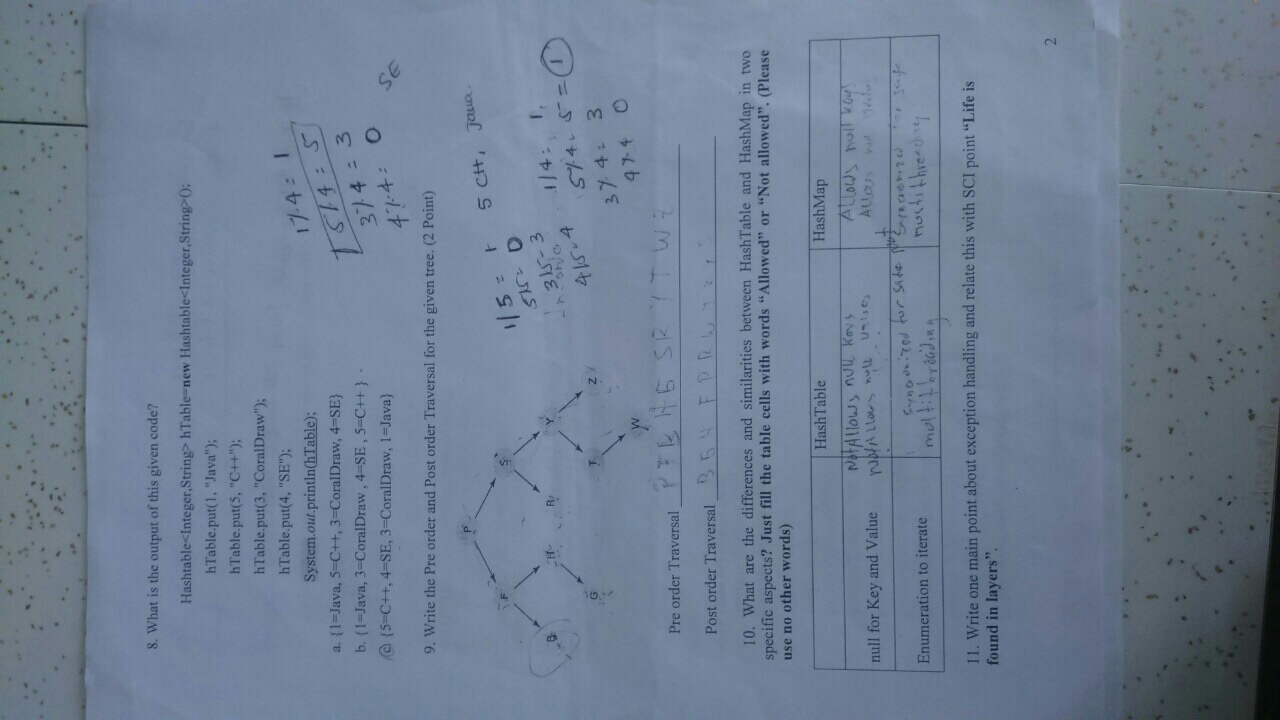 8. What is the output of this given code?
Hashtable<Integer,String> hTable=new Hashtable<Integer,String>();
hTable.put(1, "Java");
hTable.put(5, "C++");
hTable.put(3, "CoralDraw");
hTable.put(4, "SE");
System.out.println(hTable);
1%4= 1
5%4= 5
3%4= 3
4%4= 0
SE
a. {1=Java, 5=C++, 3=CoralDraw, 4=SE}
b. {1=Java, 3=CoralDraw , 4=SE , 5=C++ }
c {5=C++, 4=SE, 3=CoralDraw, 1=Java}
9. Write the Pre order and Post order Traversal for the given tree. (2 Point)
P
F S
B H R Y
G T Z
W
1/5= 1
5/5= 0
3/5- 3
4/5-4
5 C++, Java
1/4= 1
5%4= 5 = 1
3%4= 3
4%4 0
Pre order Traversal P F B H G S R Y T W Z
Post order Traversal B G H F P R W
10. What are the differences and similarities between HashTable and HashMap in two
specific aspects? Just fill the table cells with words “Allowed” or “Not allowed”. (Please
use no other words)
HashTable HashMap
Not Allows null Keys Allows null key
null for Key and Value Not Allows null values Allows
Enumeration to iterate syncronized for safe multithreading Not syncronized for safe multithreading
11. Write one main point about exception handling and relate this with SCI point “Life is
found in layers”.
2